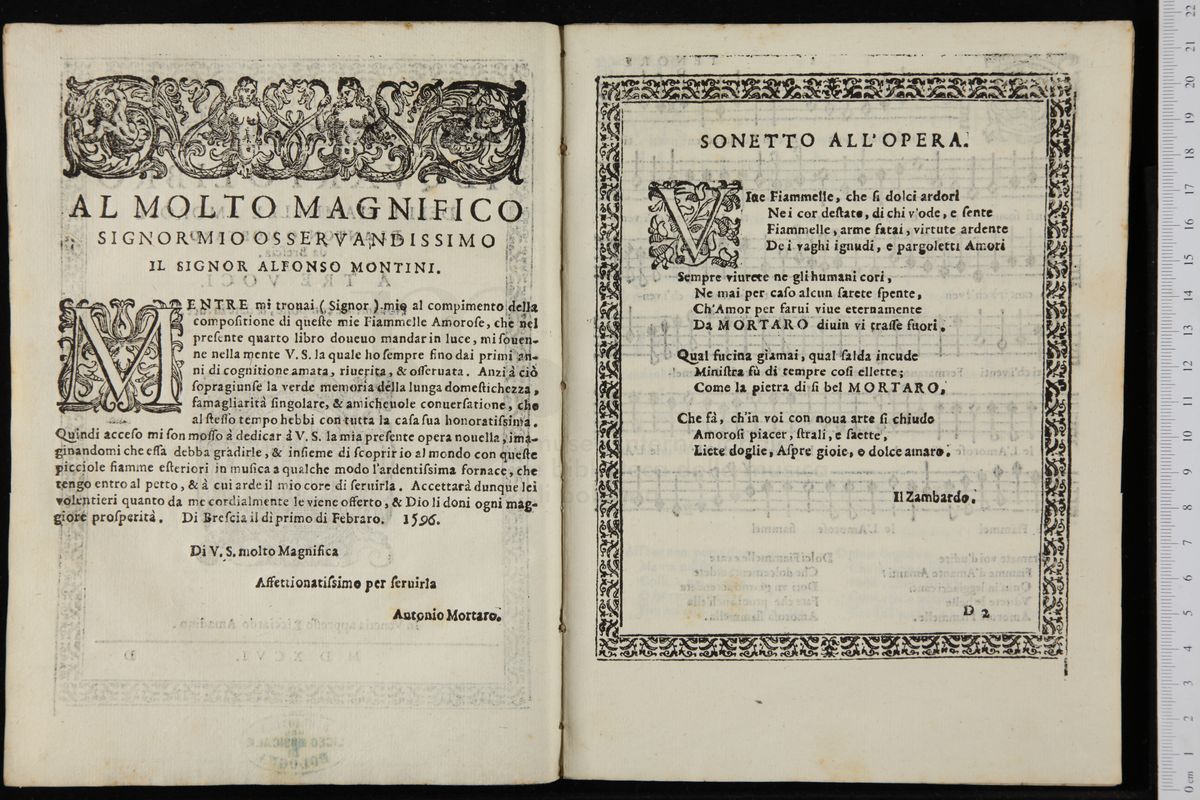 AL MOLTO MAGNIFICO
SIGNOR MIO OSSERVANDISSIMO
IL SIGNOR ALFONSO MONTINI.
MENTRE mi trouai (Signor) mio al compimento della
compositione di queſte mie Fiammelle Amoroſe, che nel
preſente quarto libro doueuo mandar in luce, mi ſouen-
ne nella mente V. S. la quale ho ſempre fino dai primi an-
ni di cognitione amata, riuerita, & oſſeruata. Anzi à ciò
ſopragiunſe la verde memoria della lunga domeſtichezza,
famagliarità ſingolare, & amicheuole conuerſatione, che
al ſteſſo tempo hebbi con tutta la caſa ſua honoratiſsima.
Quindi acceſo mi ſon moſſo à dedicar à V. S. la mia preſente opera nouella, ima-
ginandomi che eſſa debba gradirle, & inſieme di ſcoprir io al mondo con queſte
picciole fiamme eſteriori in muſica a qualche modo l'ardentiſsima fornace, che
tengo entro al petto, & à cui arde il mio core di ſeruirla. Accettarà dunque lei
volentieri quanto da me cordialmente le viene offerto, & Dio li doni ogni mag-
giore proſperità. Di Breſcia il di primo di Febraro. 1596.
Di V. S. molto Magnifica
Affettionatiſsimo per ſeruirla
Antonio Mortaro.
SONETTO ALL'OPERA.
VIue Fiammelle, che ſi dolci ardori
Ne i cor deſtate, di chi v'ode, e ſente
Fiammelle, arme fatai, virtute ardente
De i vaghi ignudi, e pargoletti Amori
Sempre viurete ne gli humani cori,
Ne mai per caſo alcun ſarete ſpente,
Ch'Amor per farui viue eternamente
Da MORTARO diuin vi traſſe fuori.
Qual fucina giamai, qual ſalda incude
Miniſtra fù di tempre coſi ellette;
Come la pietra di ſi bel MORTARO,
Che fà, ch'in voi con noua arte ſi chiudo
Amoroſi piacer, ſtrali, e ſaette,
Liete doglie, Aſpre gioie, e dolce amaro.
Il Zambardo.
D 2